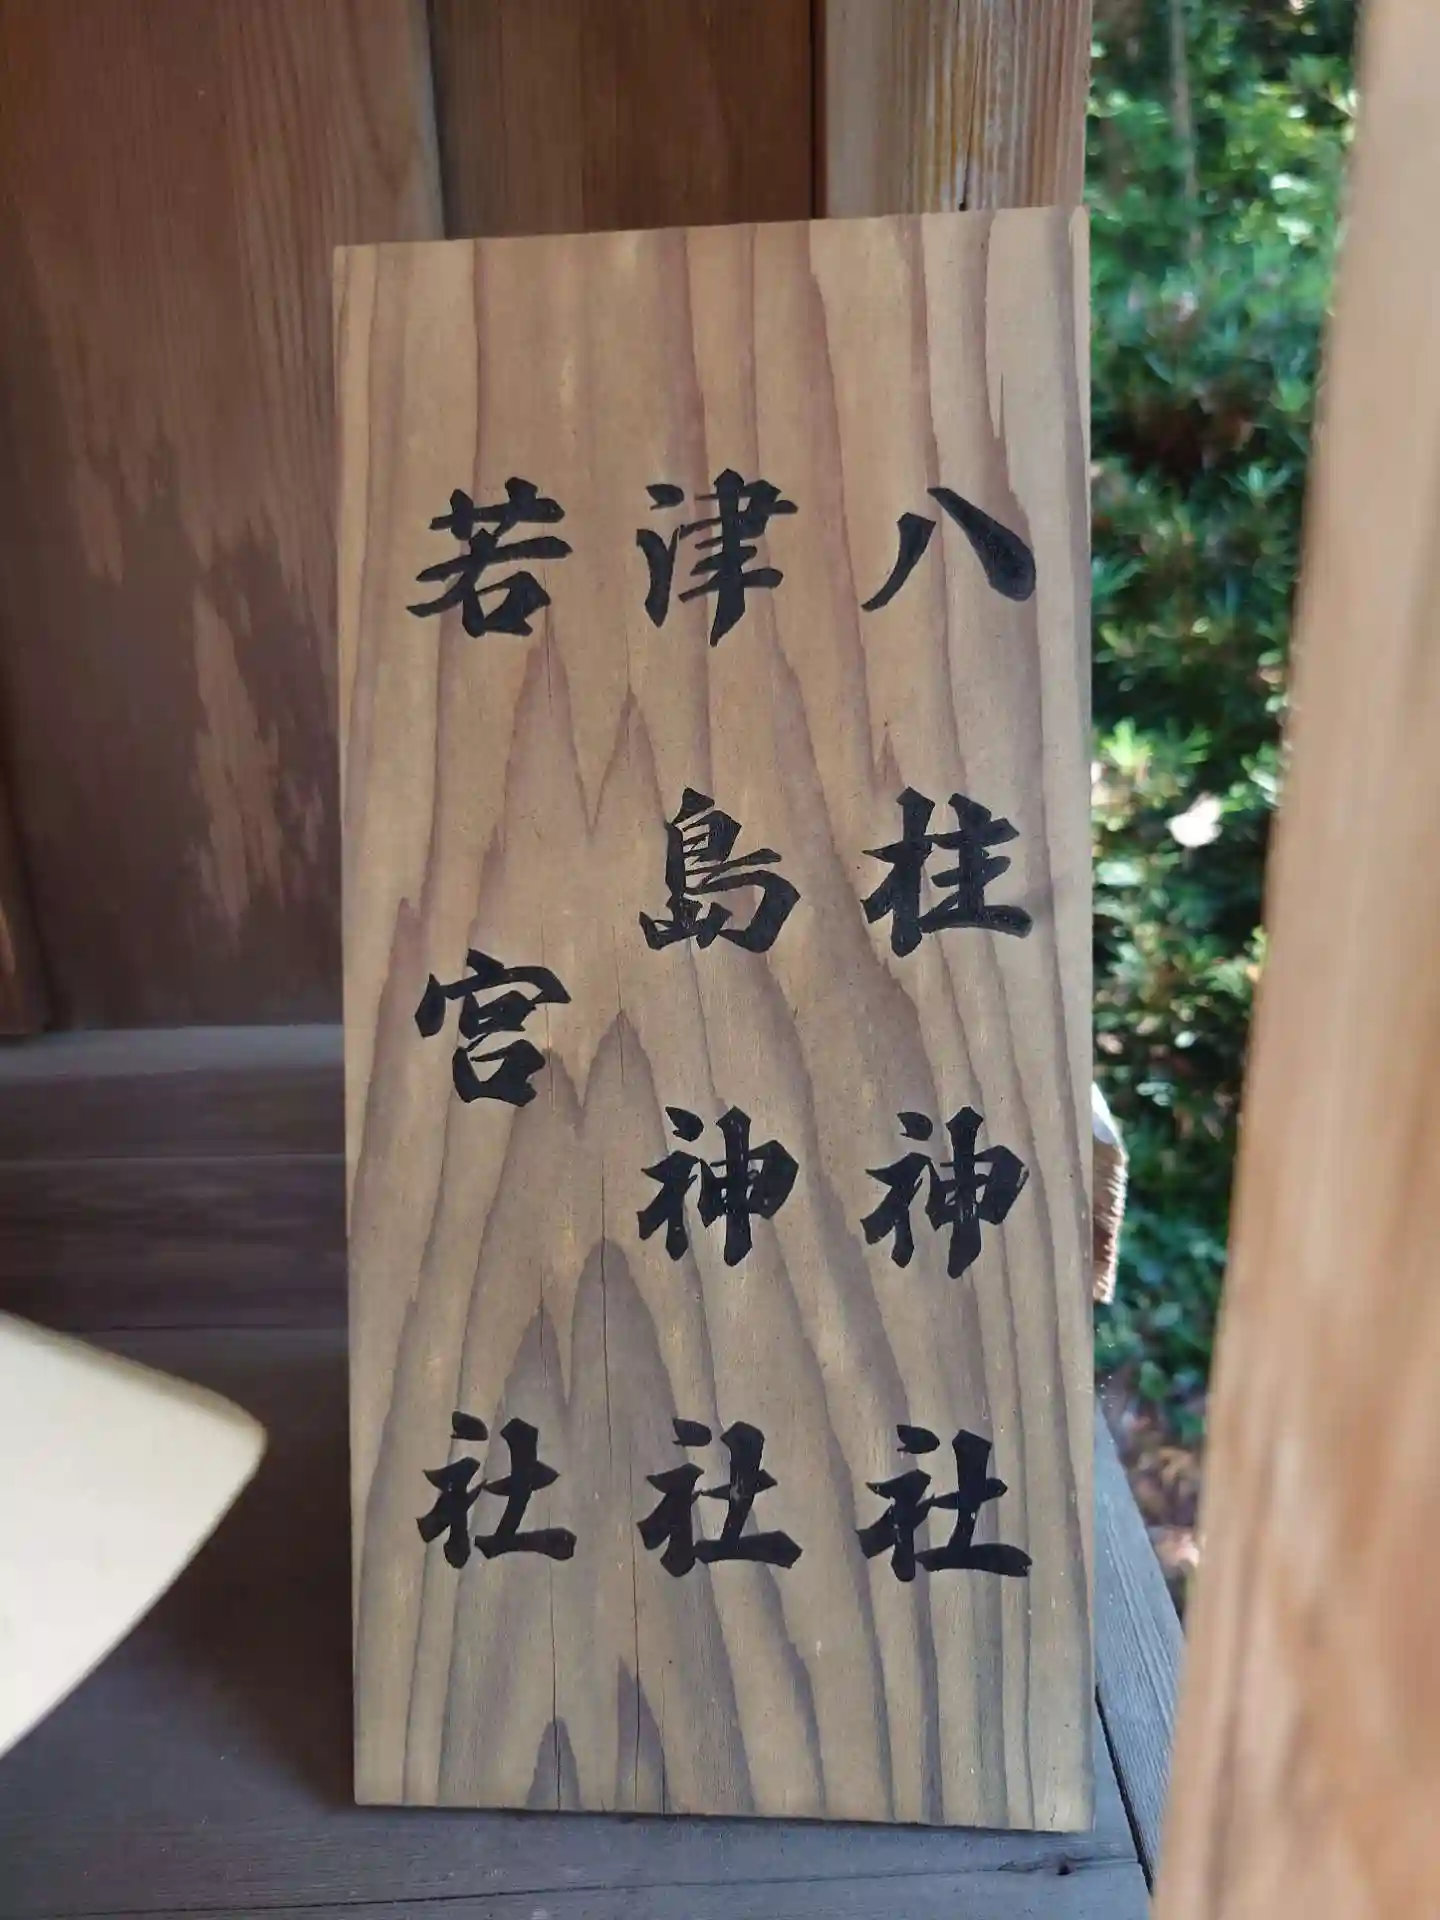 八柱神社
津島神社
若宮社